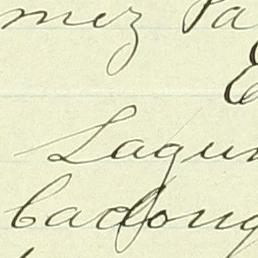 mez Pa
E
Lagun
Cadong